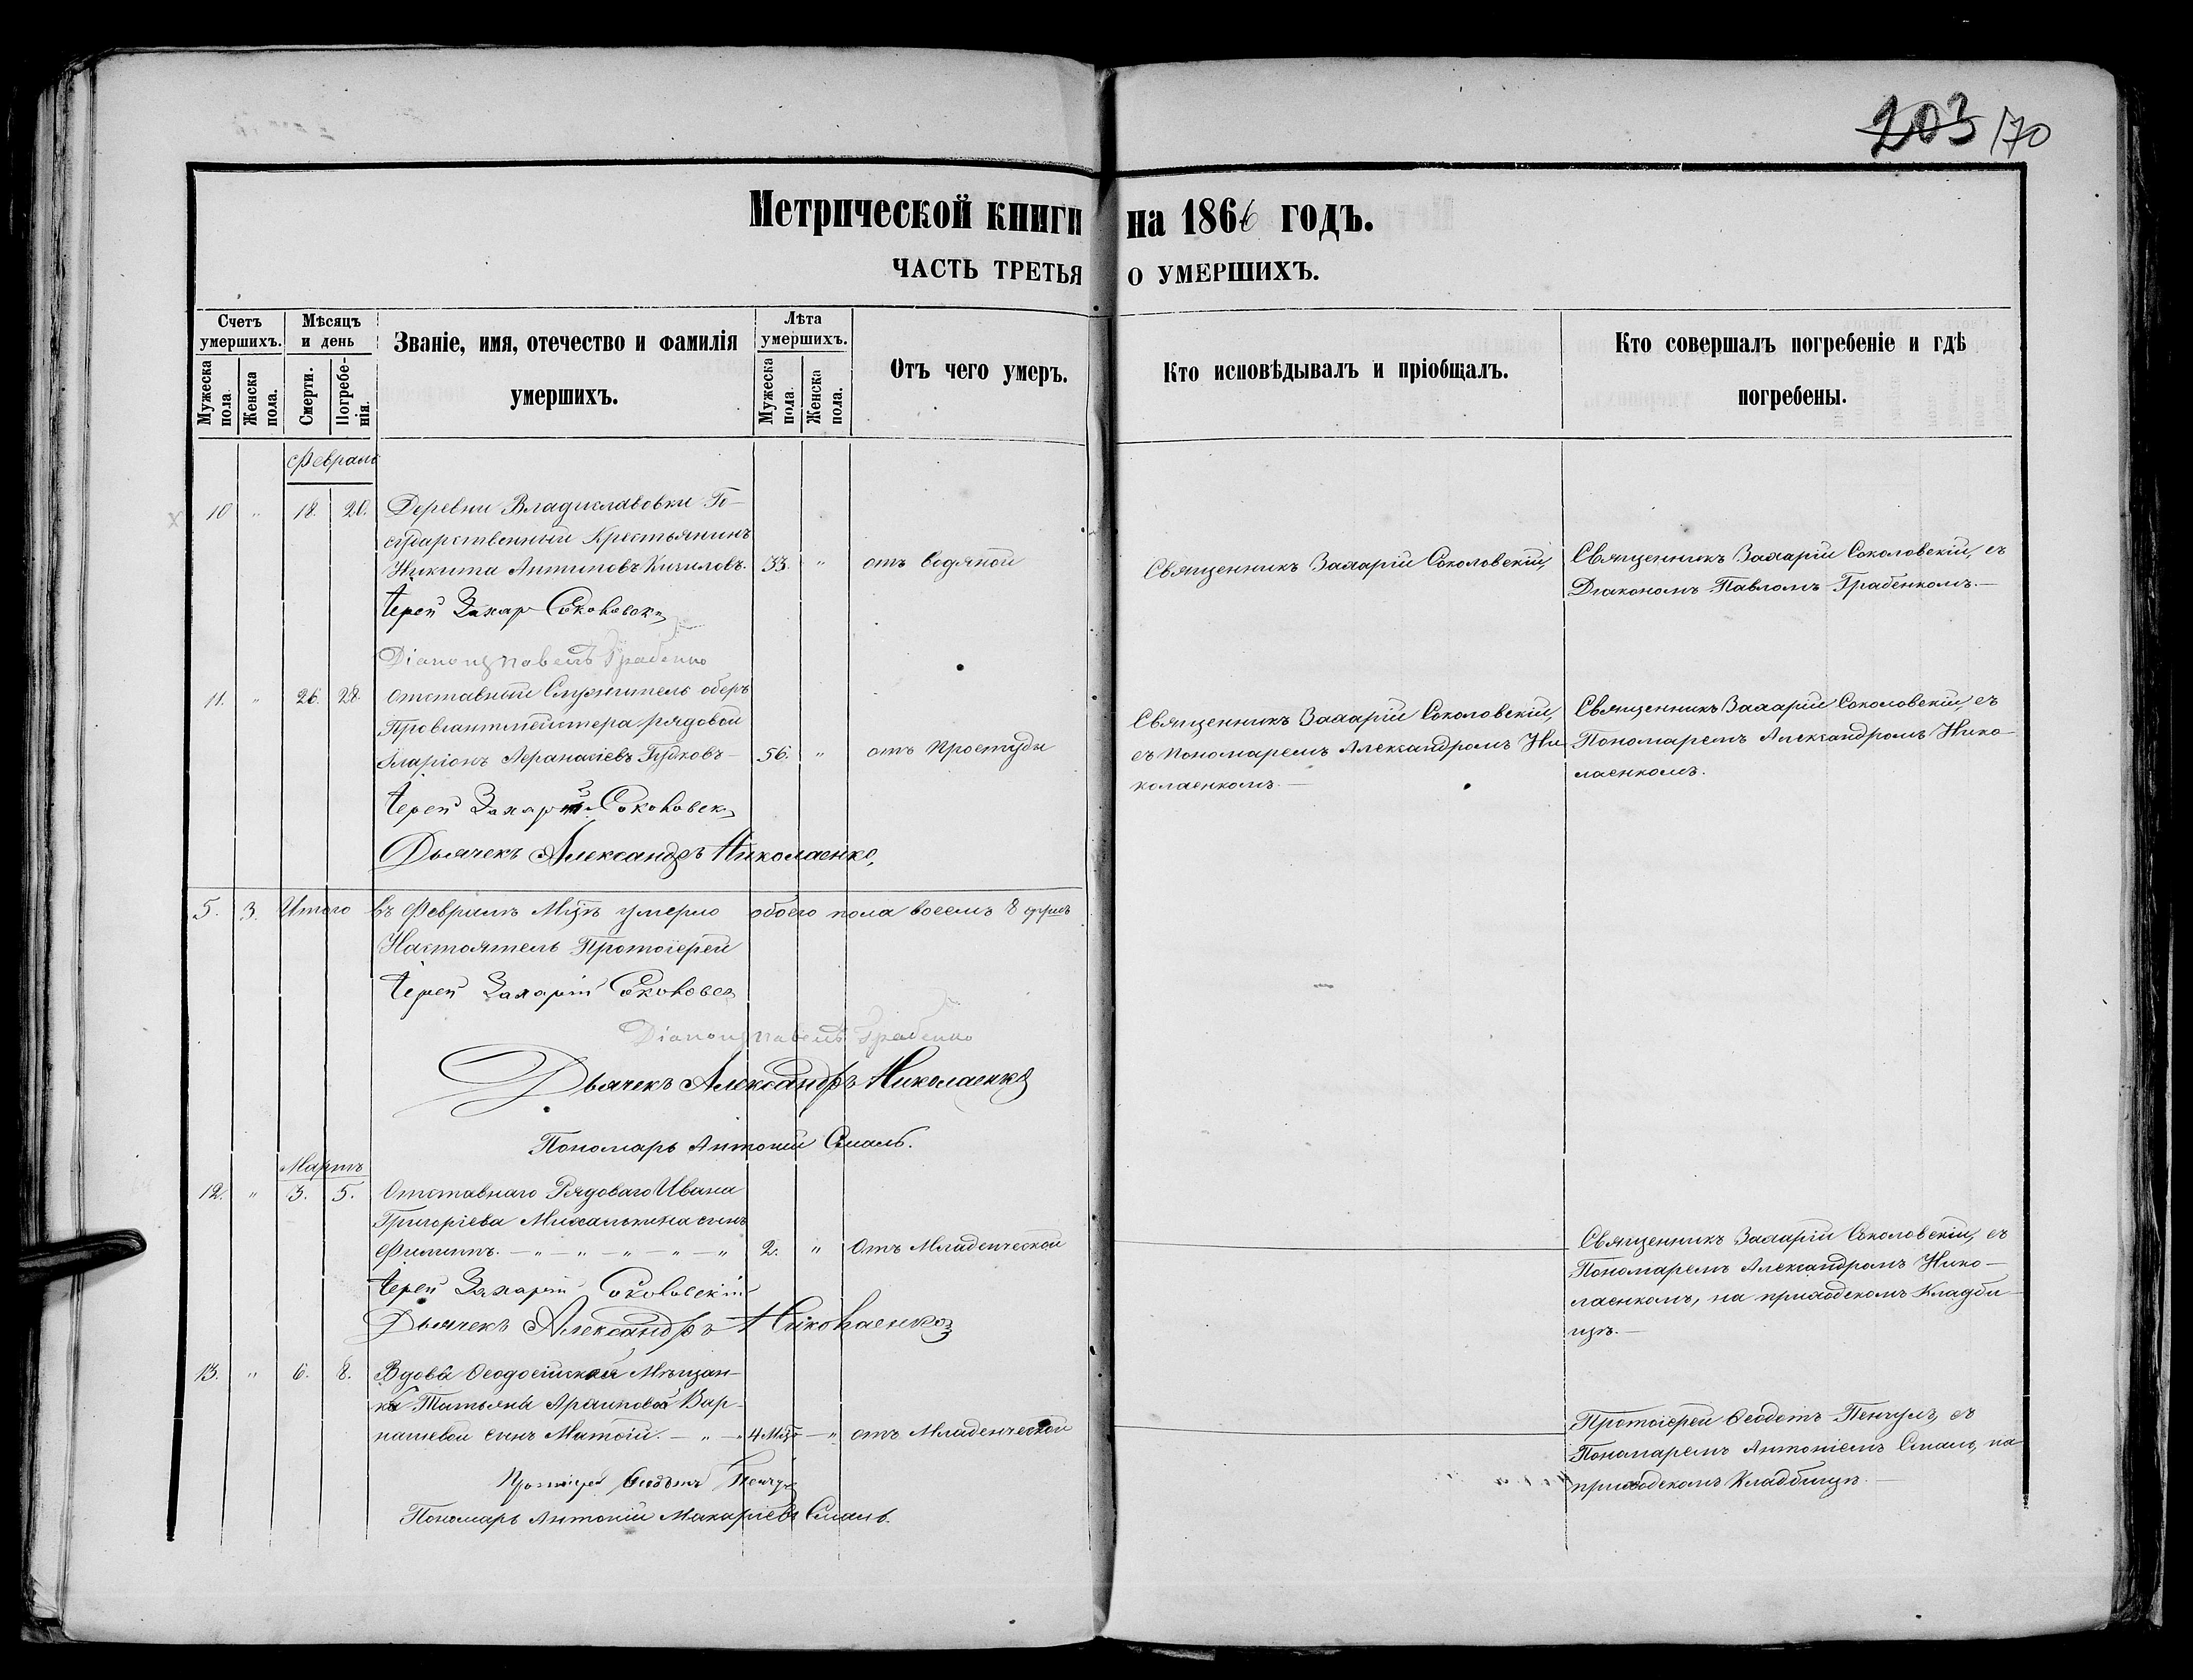 203 170
Метрической книги на 1866 годъ.
ЧАСТЬ ТРЕТЬЯ О УМЕРШИХЪ.
Счетъ умершихъ.
Мужеска пола.
Женска пола.
Мѣсяцъ и день
Смерти.
Погребенія.
Званіе, имя, отечество и фамилія
умершихъ.
Лѣта умершихъ.
Мужеска пола.
Женска пола.
Отъ чего умеръ.
Кто исповѣдывалъ и пріобщалъ.
Кто совершалъ погребеніе и гдѣ
погребены.
Февраль
10 " 18. 20. Деревни Владиславовки Го-
сударственный Крестьянинъ
Никита Антиповъ 33. " отъ водяной
Священникъ Захарій Соколовскій,
Священникъ Захарій Соколовскій, съ
Діакономъ Павломъ Грабенкомъ.—
Іерей Захар Соколовск
Діаконъ Павелъ Грабенко
11. " 26. 28. Отставный Служитель оберъ
Провіантмейстера рядовой
Иларіонъ Аѳанасіевъ Гудковъ— 56. " отъ простуды
Священникъ Захарій Соколовскій,
съ Пономаремъ Александромъ Ни-
колаенкомъ.—
Священникъ Захарій Соколовскій, съ
Пономаремъ Александромъ Нико-
лаенкомъ.
Іерей Захарій Соколовск
Дьячекъ Александръ Николаенко,
5. 3. Итого въ Февралѣ М-цѣ умерло обоего пола восемь 8
Настоятель Протоіерей
Іерей Захарій Соколовс
Діаконъ Павелъ Грабенко
Дьячекъ Александръ Николаенко
Пономарь Антоній Смаль.
Мартъ
12. " 3. 5. Отставнаго Рядоваго Ивана
Григоріева Михалькина сынъ
Филиппъ. — " — " — " — " — " 2. " Отъ Младенческой
Священникъ Захарій Соколовскій, съ
Пономаремъ Александромъ Нико-
лаенкомъ, на приходскомъ Кладби-
щѣ.—
Іерей Захарій Соколовскій
Дьячекъ Александръ Николаенко
13. " 6. 8. Вдовы Ѳеодосійской Мѣщан-
ки Татьяны Архиповой Вар-
сынъ Матѳій. — " — " 4 Мѣ — " отъ Младенческой
Протоіерей Ѳеодотъ Пенчулъ, съ
Пономаремъ Антоніемъ Смаль, на
приходскомъ Кладбищѣ.—
Протоіерей Ѳеодотъ Пенчул
Пономарь Антоній Макаріевъ Смаль.